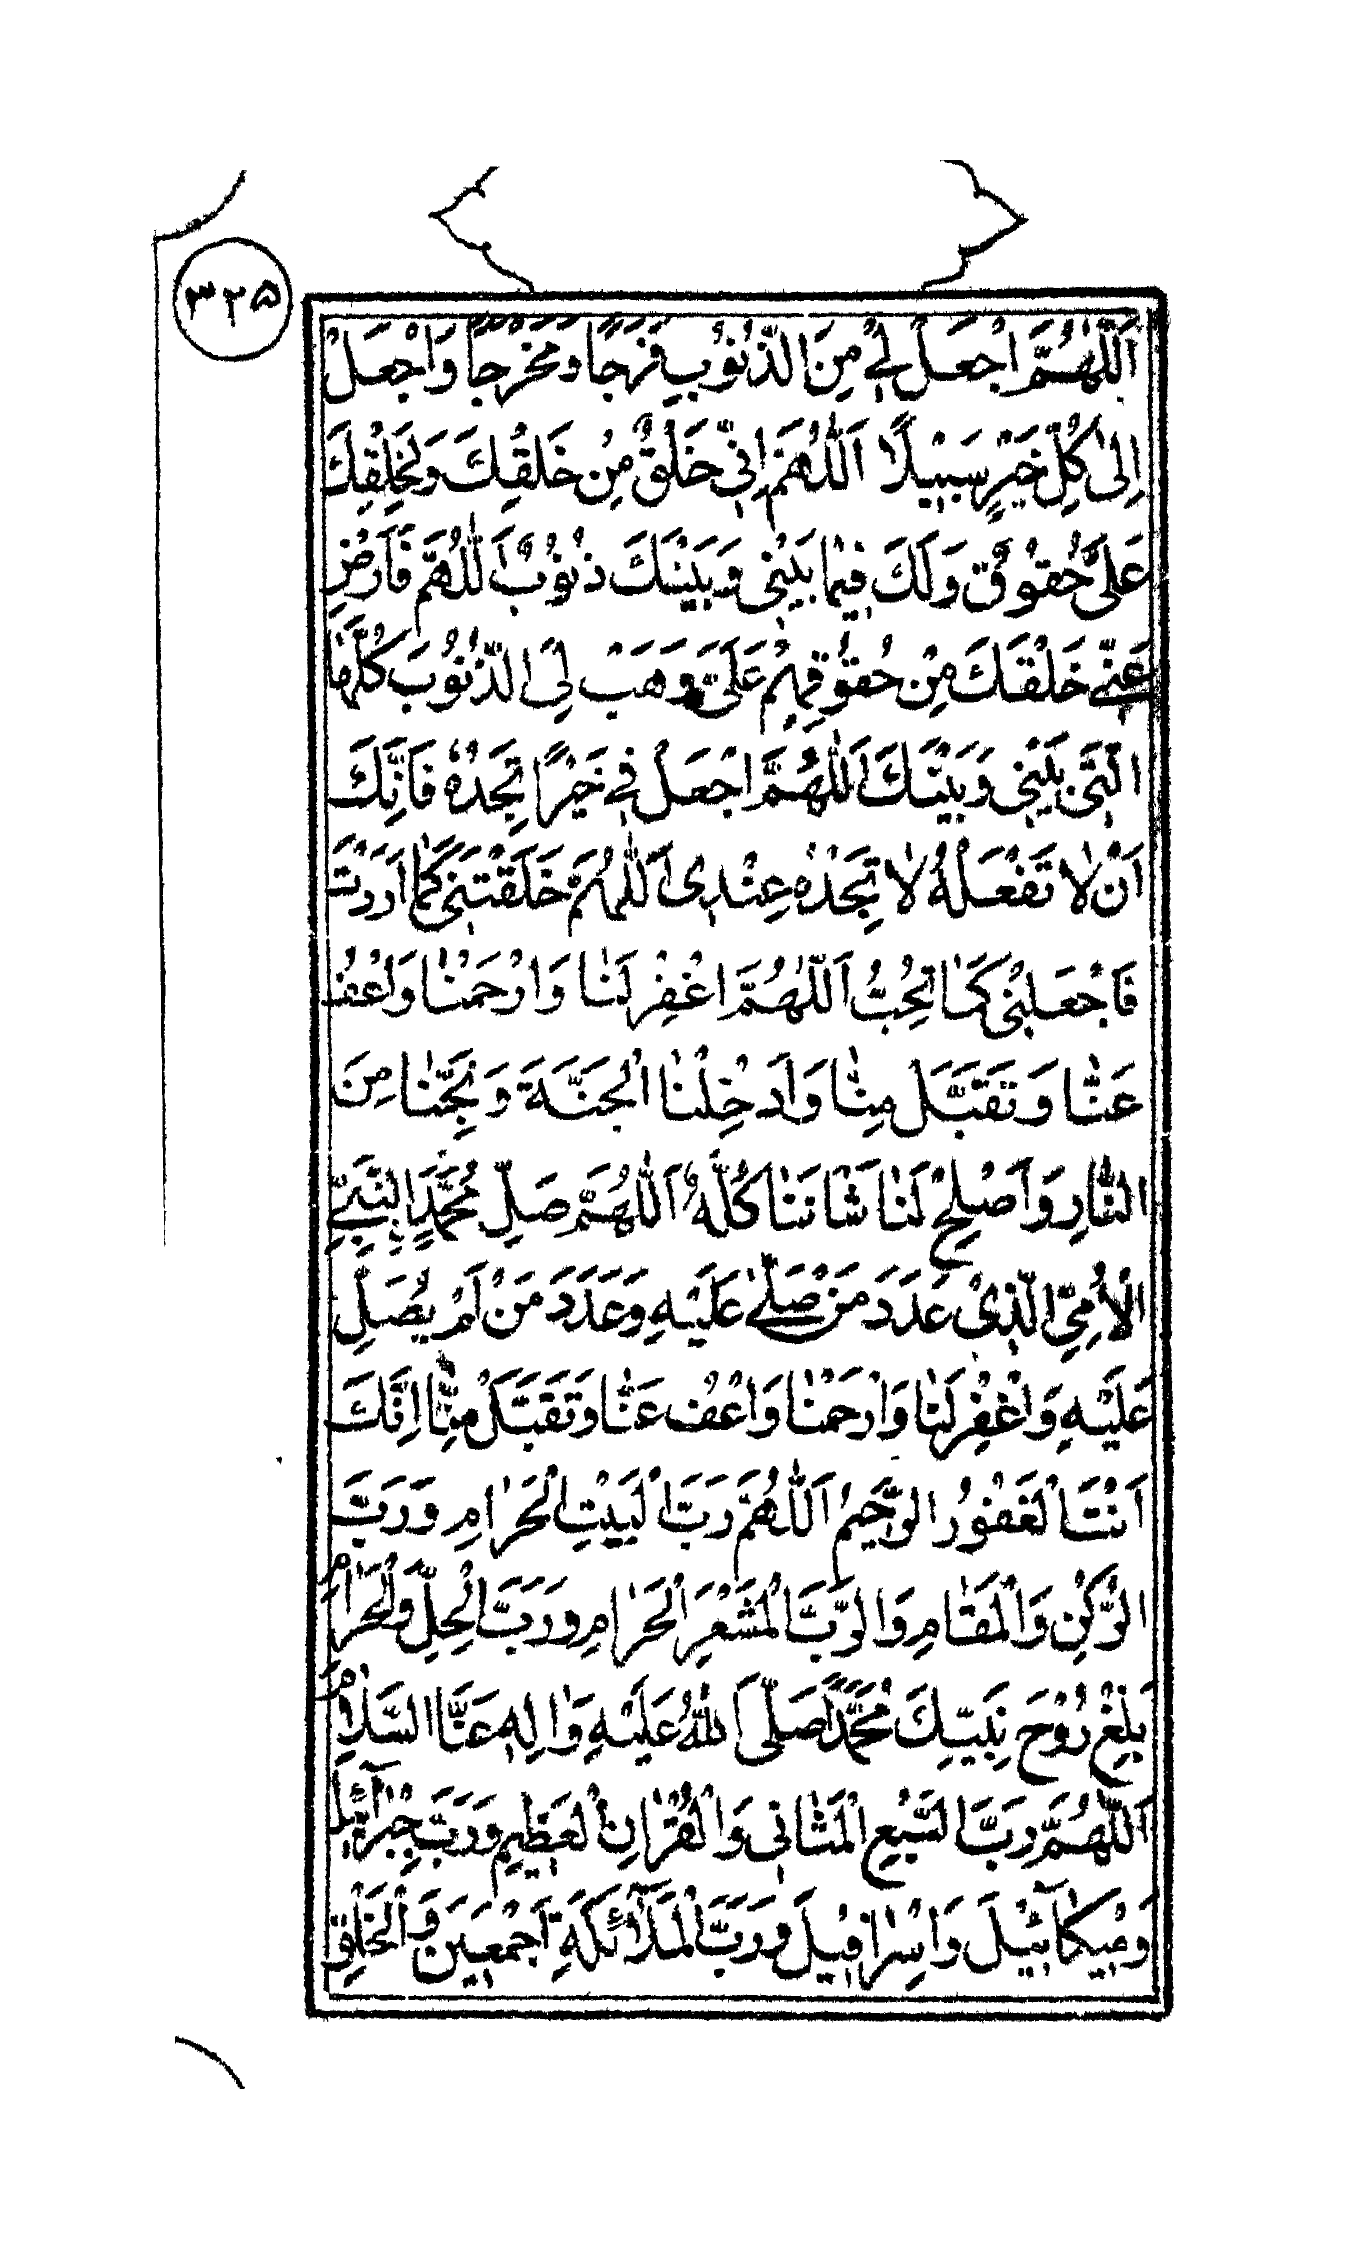 ۳۲۵
اَللّٰهُمَّ اجْعَلْ لِيْ مِنَ الذُّنُوْبِ فَرَجًا وَ مَخْرَجًا وَاجْعَلْ
اِلىٰ كُلِّ خَيْرٍ سَبِيْلًا اَللّٰهُمَّ اِنِّيْ خَلْقٌ مِنْ خَلْقِكَ وَلِخَلْقِكَ
عَلَىَّ حُقُوْقٌ وَلَكَ فِيْمَا بَيْنِىْ وَبَيْنَكَ ذُنُوْبٌ اَللّٰهُمَّ فَاَرْضِ
عَنِّيْ خَلْقَكَ مِنْ حُقُوْقِهِمْ عَلَىَّ وَهَبْ لِىَ الذُّنُوْبَ كُلَّهَا
الَّتِىْ بَيْنِىْ وَبَيْنَكَ اَللّٰهُمَّ اجْعَلْ فِيَّ خَيْرًا تَجِدْهُ فَاِنَّكَ
اَنْ لاٰ تَفْعَلْهُ لاٰ تَجِدْهُ عِنْدِىْ اَللّٰهُمَّ خَلَقْتَنِىْ كَمَا اَرَدْتَ
فَاجْعَلْنِىْ كَمٰا تُحِبُّ اَللّٰهُمَّ اغْفِرْ لَنٰا وَارْحَمْنٰا وَاعْفُ
عَنّٰا وَتَقَبَّلْ مِنّٰا وَاَدْخِلْنٰا الْجَنَّةَ وَنَجِّنٰا مِنَ
النّٰارِ وَاَصْلِحْ لَنٰا شَانَنٰا كُلَّهُ اَللّٰهُمَّ صَلِّ مُحَمَّدٍ النَّبِيِّ
الْاُمِّيِّ الَّذِىْ عَدَدَ مَنْ صَلّٰى عَلَيْهِ وَعَدَدَ مَنْ لَمْ يُصَلِّ
عَلَيْهِ وَاغْفِرْ لَنٰا وَارْحَمْنٰا وَاعْفُ عَنّٰا وَتَقَبَّلْ مِنّٰا اِنَّكَ
اَنْتَ الْغَفُوْرُ الرَّحِيْمُ اَللّٰهُمَّ رَبَّ الْبَيْتِ الْحَرٰامِ وَرَبَّ
الرُّكْنِ وَالْمَقٰامِ وَالرَّبَّ الْمَشْعَرِ الْحَرٰامِ وَرَبَّ الْحِلِّ وَالْحَرٰامِ
بَلِّغْ رُوْحَ نَبِيِّكَ مُحَمَّدًا صَلَّى اللّٰهُ عَلَيْهِ وَاٰلِهِ عَنَّا السَّلاٰمَ
اَللّٰهُمَّ رَبَّ السَّبْعِ الْمَثٰانِى وَالْقُرْاٰنِ الْعَظِيْمِ وَرَبَّ جِبْرَآئِيْلَ
وَمِيْكٰآئِيْلَ وَاِسْرٰافِيْلَ وَرَبَّ الْمَلَآئِكَةِ اَجْمَعِيْنَ وَالْخَلْقِ